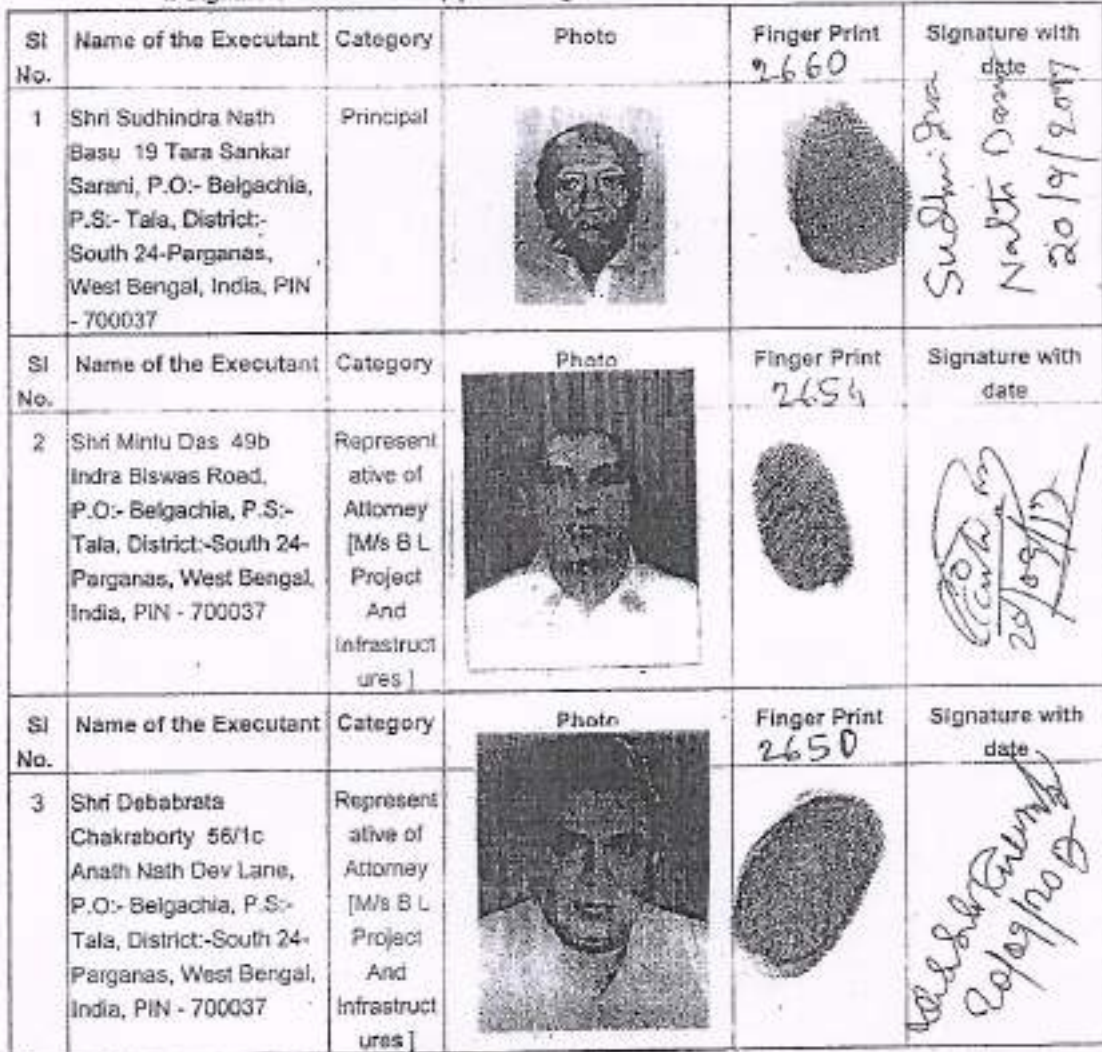 Sl No. Name of the Executant Category Photo Finger Print Signature with date
2660
1 Shri Sudhindra Nath Principal
Basu 19 Tara Sankar
Sarani, P.O:- Belgachia,
P.S:- Tala, District:-
South 24-Parganas,
West Bengal, India, PIN
- 700037
Sudhindra
Nath
20/9/2017
Sl No. Name of the Executant Category Photo Finger Print Signature with date
2654
2 Shri Mintu Das 49b
Indra Biswas Road,
P.O:- Belgachia, P.S:-
Tala, District:-South 24-
Parganas, West Bengal,
India, PIN - 700037
Represent
ative of
Attorney
[M/s B L
Project
And
Infrastruct
ures ]
20/09/17
Sl No. Name of the Executant Category Photo Finger Print Signature with date
2650
3 Shri Debabrata
Chakraborty 56/1c
Anath Nath Dev Lane,
P.O:- Belgachia, P.S:-
Tala, District:-South 24-
Parganas, West Bengal,
India, PIN - 700037
Represent
ative of
Attorney
[M/s B L
Project
And
Infrastruct
ures ]
20/09/2017